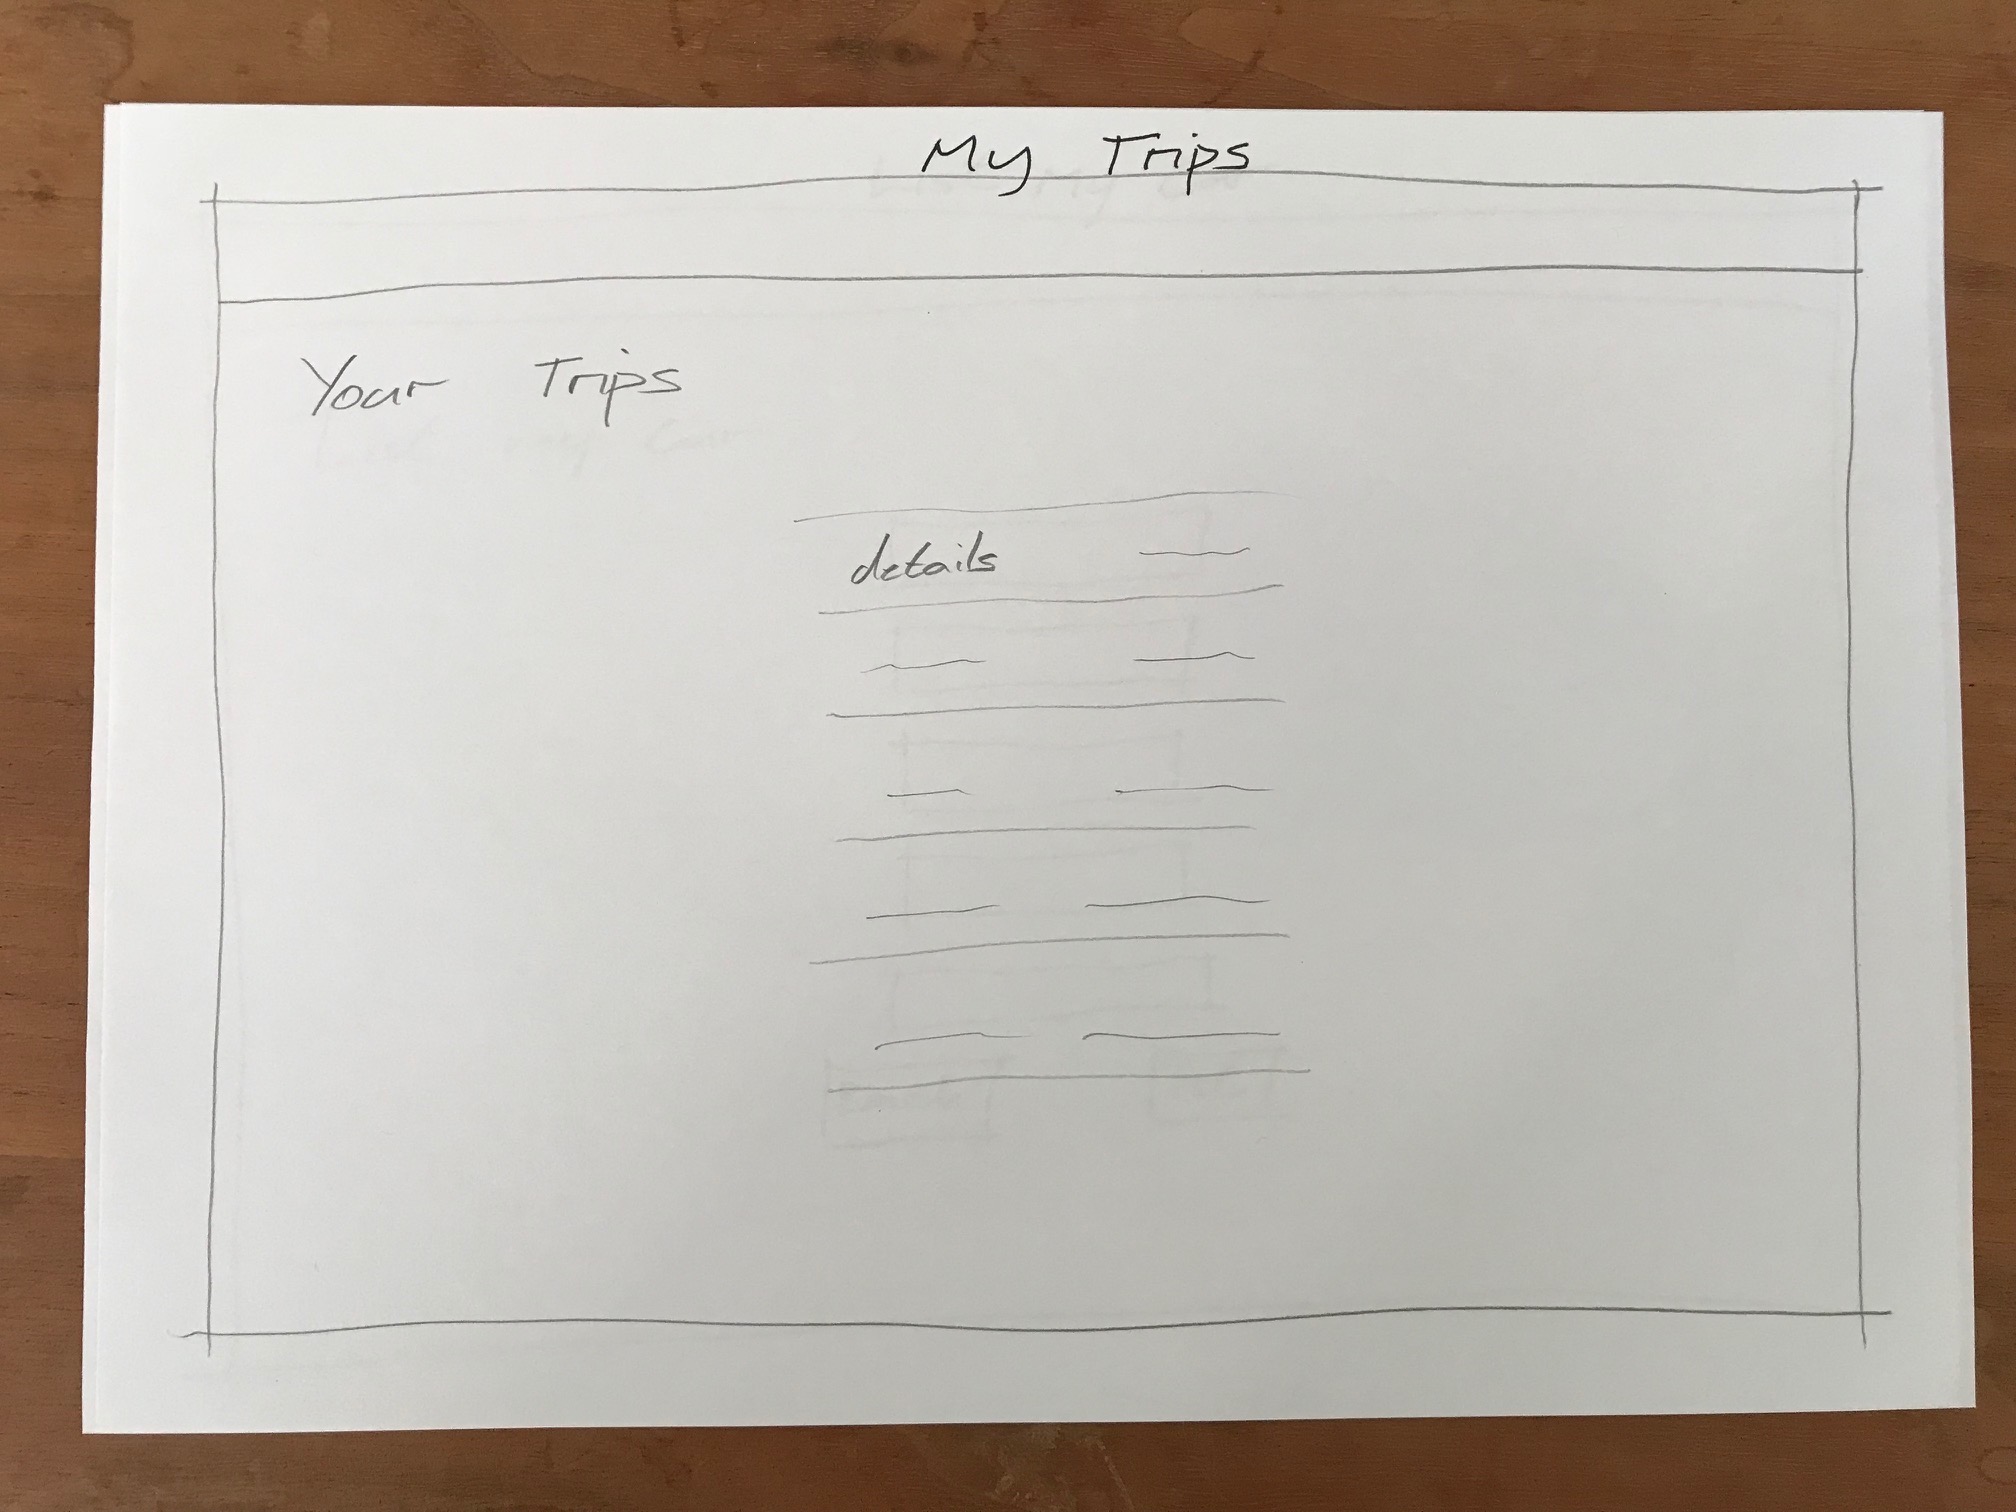 My Trips
Your Trips
details